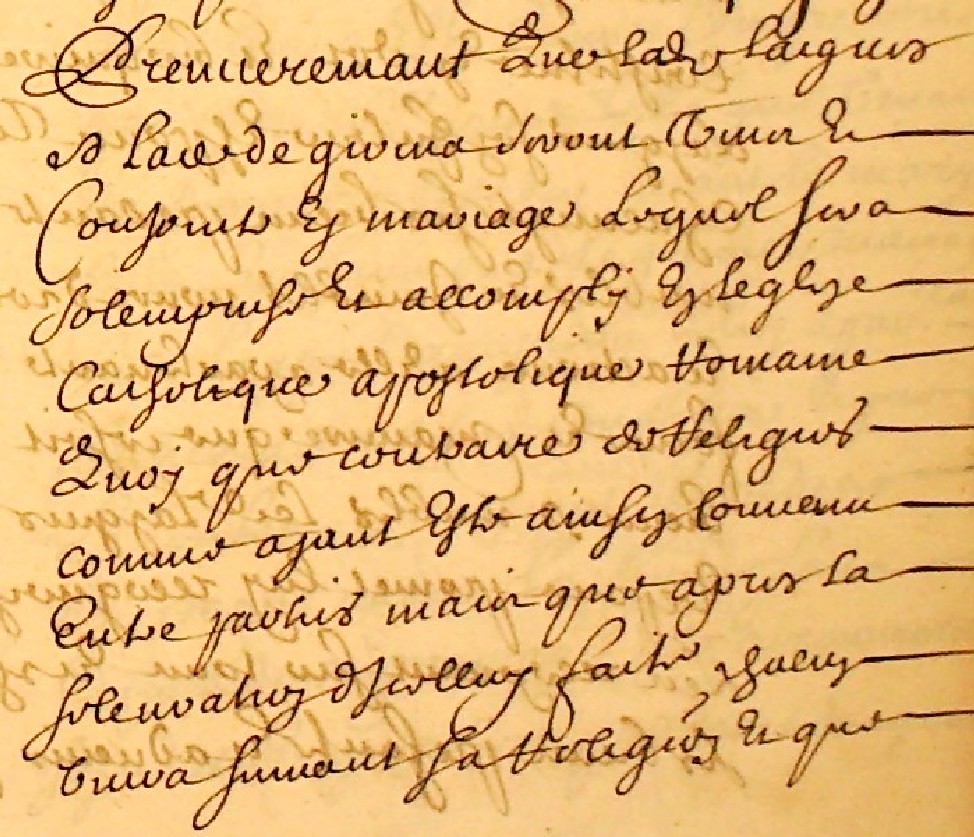 Premieremant Que lad. Laigues
A lad. de givina seront Unis Et
Conjoints Ez mariage Lequel sera
solempnise Et accomply Ez leglize
Catholique apostolique Romaine
Quoy que contraire de Religions
comme ayant Este ainsy Convenu
Entre parties mais que apres la
solenvation d'Icelluy faite chacun
vivra suivant sa Religion Et que